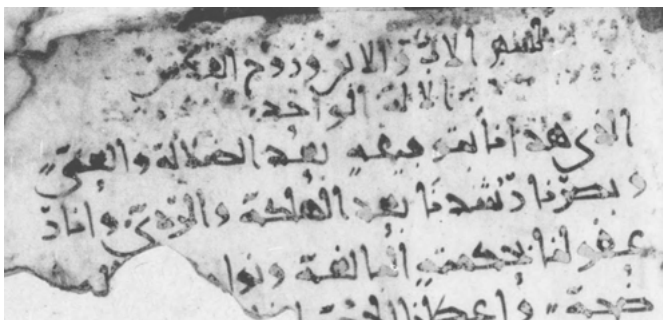 بسم الاب والابن وروح القدس
الاله الواحد
الذي هدانا بتوفيقه بعد الضلالة والعمى
وبصرنا رشدنا بعد الهلكة والردى وانار
عقولنا بحكمته البالغة